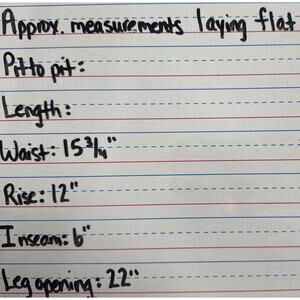 Approx. measurements laying flat
Pit to pit:
Length:
Waist: 15 3/4"
Rise: 12"
Inseam: 6"
Leg opening: 22"